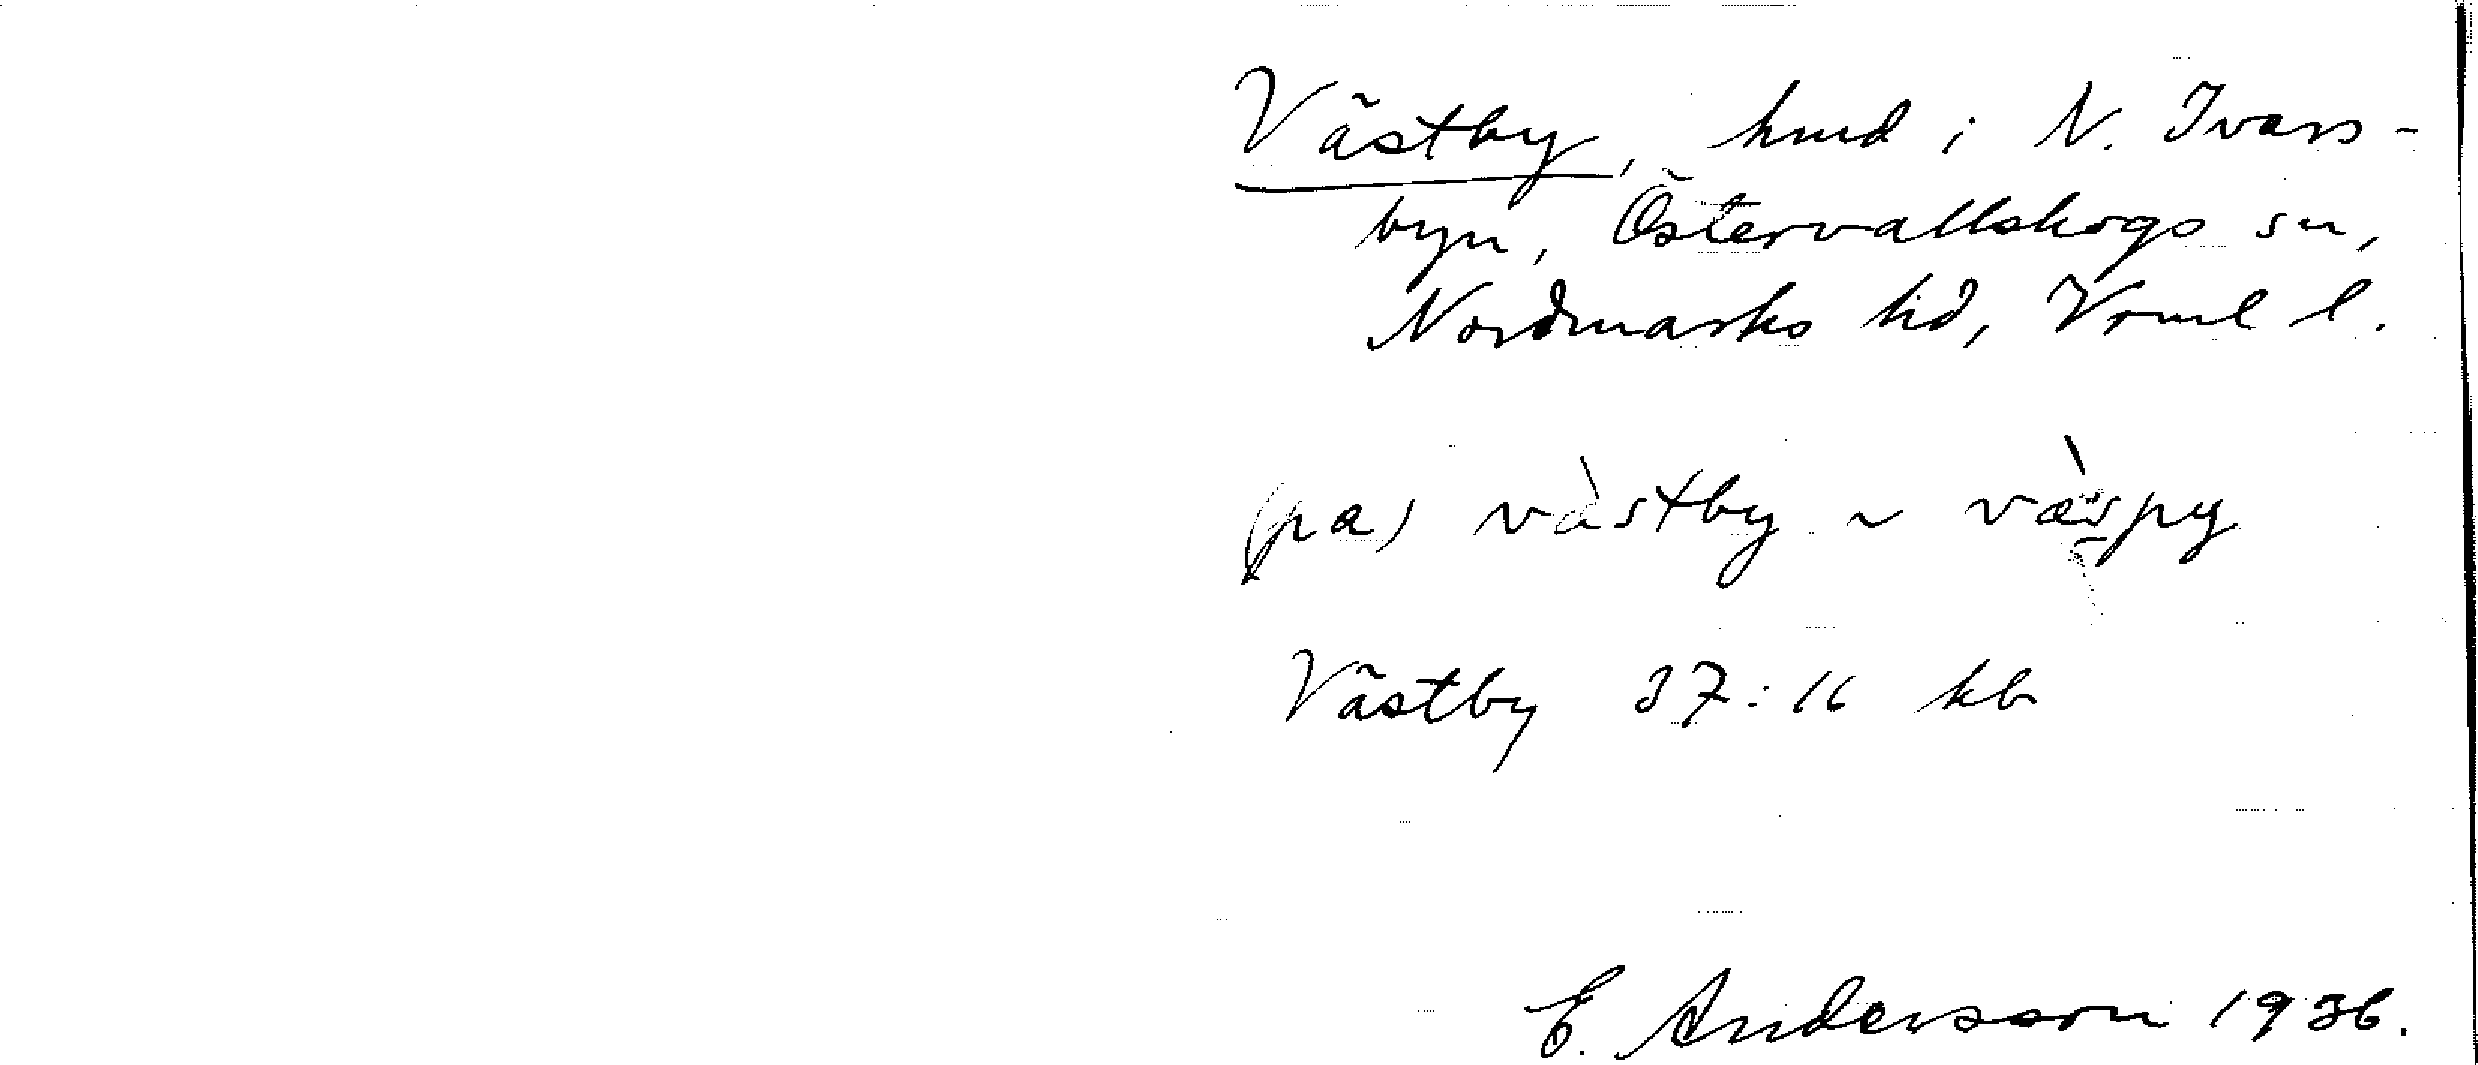 Västby, hmd i N. Ivars-
byn, Östervallskogs sn,
Nordmarks hd, Vrml l.
(pa) vàstby ~ væ̀spy
Västby 37:16 kb
E. Andersson 1936.